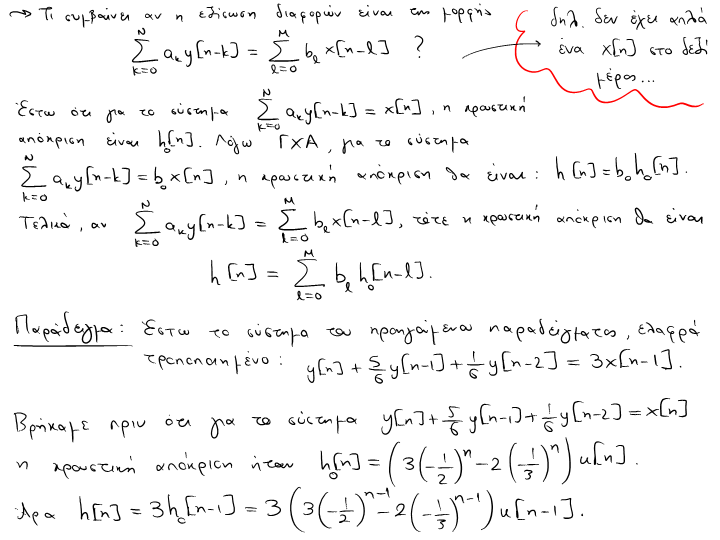 → Τι συμβαίνει αν η εξίσωση διαφορών είναι της μορφής
\sum_{k=0}^{N} a_k y[n-k] = \sum_{l=0}^{M} b_l x[n-l] ?
δηλ. δεν έχει απλά
ένα x[n] στο δεξί
μέρος...
Έστω ότι για το σύστημα \sum_{k=0}^{N} a_k y[n-k] = x[n], η κρουστική
απόκριση είναι h_0[n]. Λόγω ΓΧΑ, για το σύστημα
\sum_{k=0}^{N} a_k y[n-k] = b_0 x[n], η κρουστική απόκριση θα είναι: h[n] = b_0 h_0[n].
Τελικά, αν \sum_{k=0}^{N} a_k y[n-k] = \sum_{l=0}^{M} b_l x[n-l], τότε η κρουστική απόκριση θα είναι
h[n] = \sum_{l=0}^{M} b_l h_0[n-l].
Παράδειγμα: Έστω το σύστημα του προηγούμενου παραδείγματος, ελαφρά
τροποποιημένο: y[n] + \frac{5}{6} y[n-1] + \frac{1}{6} y[n-2] = 3x[n-1].
Βρήκαμε πριν ότι για το σύστημα y[n] + \frac{5}{6} y[n-1] + \frac{1}{6} y[n-2] = x[n]
η κρουστική απόκριση ήταν h_0[n] = (3(-\frac{1}{2})^n - 2(-\frac{1}{3})^n) u[n].
Άρα h[n] = 3h_0[n-1] = 3(3(-\frac{1}{2})^{n-1} - 2(-\frac{1}{3})^{n-1}) u[n-1].